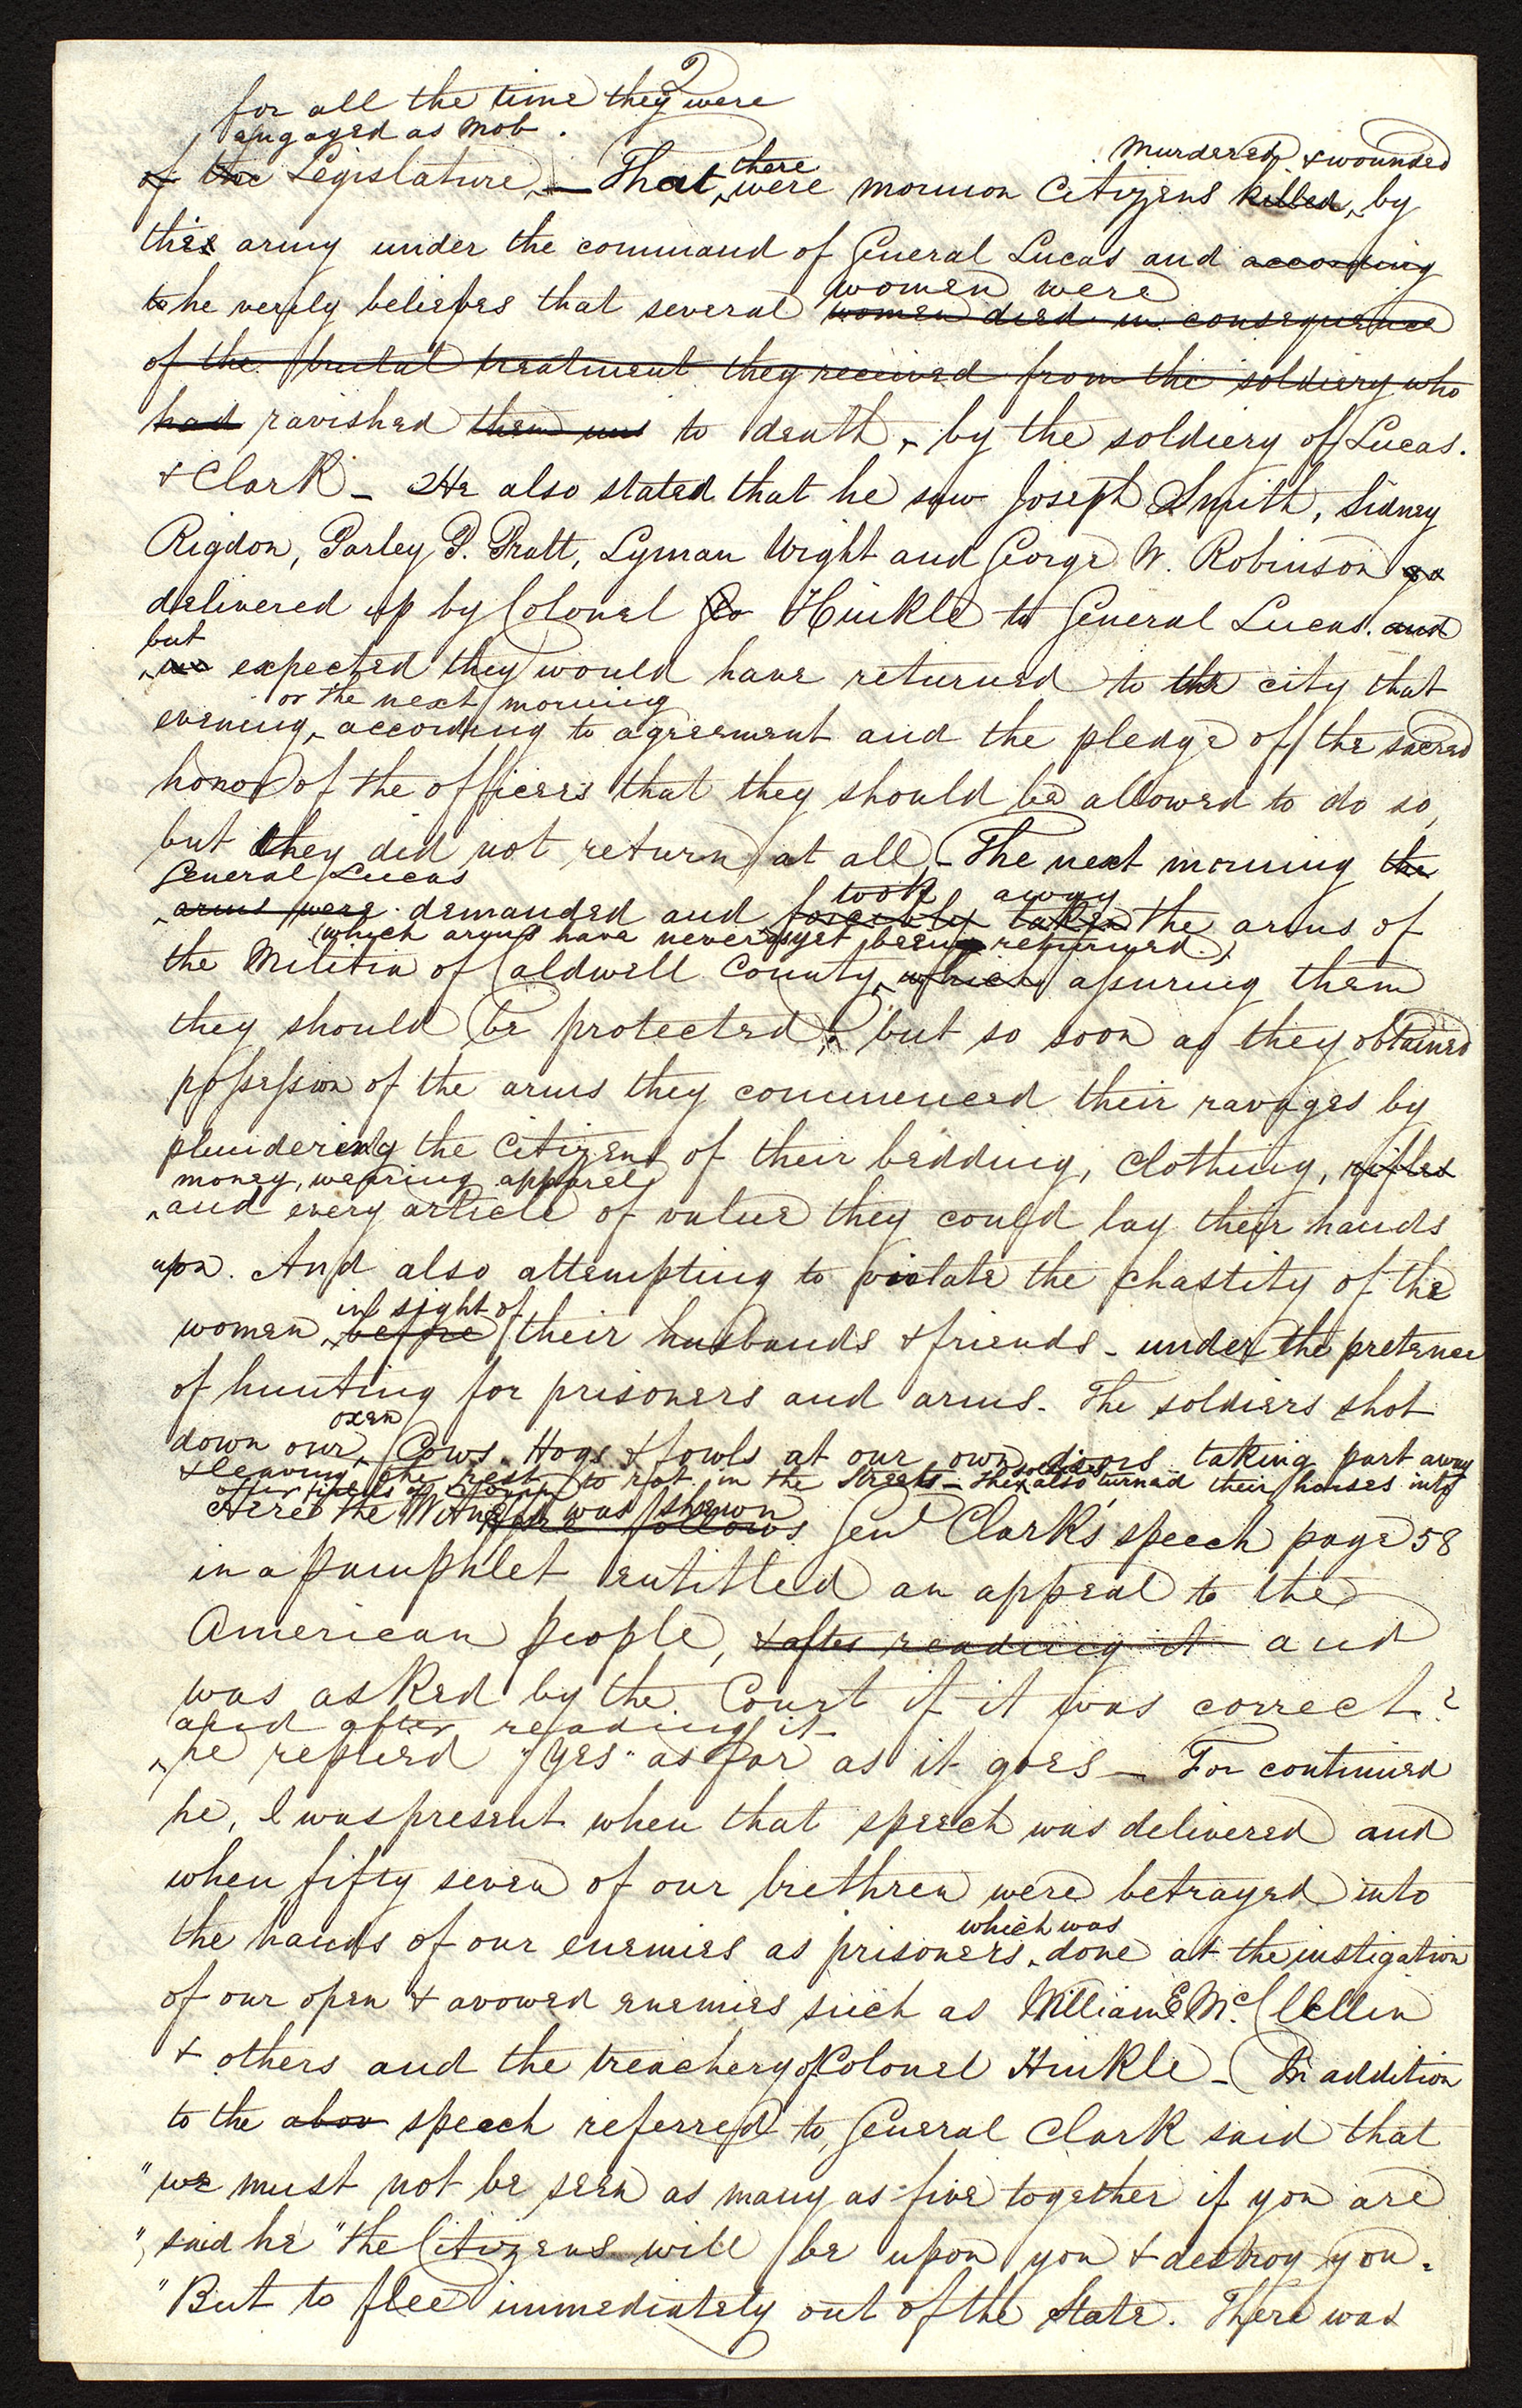 2
for all the time they were
engaged as mob.
of the Legislature, — That there were mormon Citizens killed murdered & wounded by
this army under the command of General Lucas and according
to he verily believes that several women were women died in consequence
of the brutal treatment they received from the soldiery who
had ravished them to death, by the soldiery of Lucas.
& Clark — He also stated that he saw Joseph Smith, Sidney
Rigdon, Parley P. Pratt, Lyman Wight and George W. Robinson
delivered up by Colonel Geo Hinkle to General Lucas. and
but expected they would have returned to the city that
evening, or the next morning according to agreement and the pledge of the sacred
honor of the officers that they should be allowed to do so,
but they did not return at all — The next morning the
General Lucas
arms were demanded and forcibly taken took away the arms of
the Militia of Caldwell County, (which arms have never as yet been returned.) which assuring them
they should be protected, but so soon as they obtained
possession of the arms they commenced their ravages by
plundering the citizens of their bedding, clothing, rifles
money, wearing apparel
and every article of value they could lay their hands
upon. And also attempting to violate the chastity of the
women before in sight of their husbands & friends — under the pretence
of hunting for prisoners and arms. The soldiers shot
down our oxen, Cows, Hogs & fowls at our own doors taking part away
& leaving the rest to rot in the Streets — The soldiers also turned their horses into
our fields of corn
Here the Witness was shewn as follows Genl Clark's speech page 58
in a pamphlet entitled an appeal to the
American people, & after reading it and
was asked by the Court if it was correct?
and after reading it
he replied "Yes" as far as it goes — For continued
he, I was present when that speech was delivered and
when fifty seven of our brethren were betrayed into
the hands of our enemies as prisoners, which was done at the instigation
of our open & avowed enemies such as William E Mc.Clellin
& others and the treachery of Colonel Hinkle — In addition
to the abov speech referred to, General Clark said that
"we must not be seen as many as five together if you are
", said he "the Citizens will be upon you & destroy you.
"But to flee immediately out of the State. There was